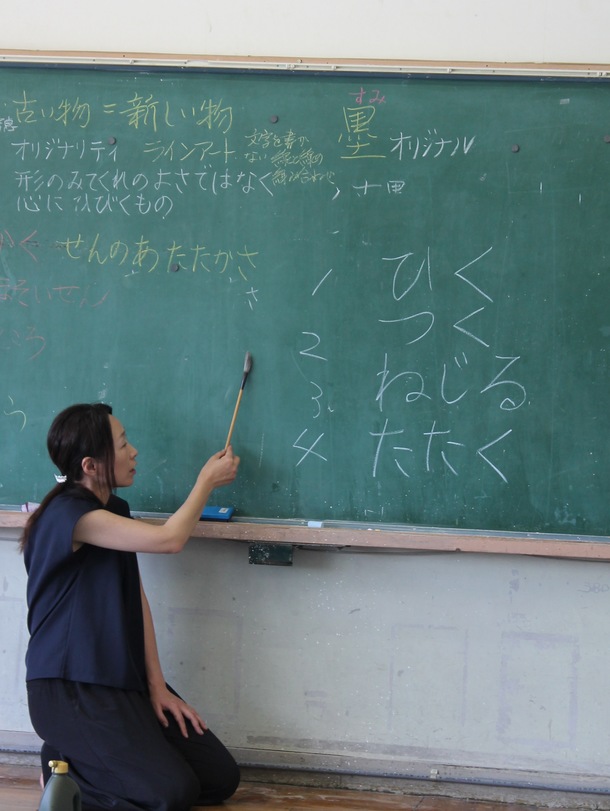 古い物=新しい物
オリジナリティ ラインアート
形のみてくれのよさではなく
心にひびくもの
せんのあたたかさ
さ
ほそいせん
う
すみ
墨 オリジナル
1 ひく
2 つく
3. ねじる
4 たたく